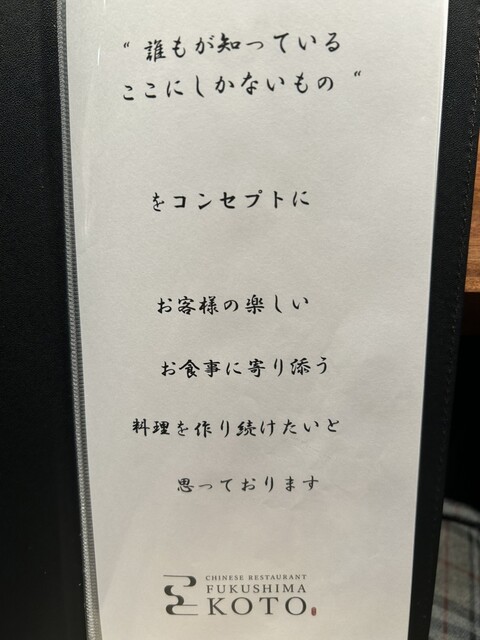 “ 誰もが知っている
ここにしかないもの “
をコンセプトに
お客様の楽しい
お食事に寄り添う
料理を作り続けたいと
思っております
CHINESE RESTAURANT
FUKUSHIMA
KOTO